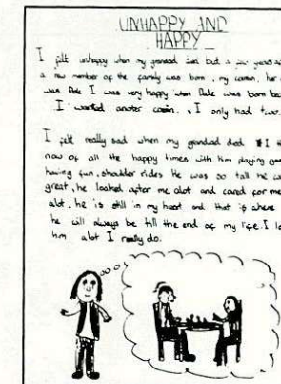 UNHAPPY AND
HAPPY
I felt unhappy when my grandad died but a few years ago
a new member of the family was born, my cousin, her
was Jade I was very happy when Jade was born
I wanted anoter cosin. I only had two.
I felt really sad when my grandad died I
now of all the happy times with him playing
having fun, shoulder rides He was so tall he
great, he looked after me alot and cared for me
alot. he is still in my heart and that is where
he will always be till the end of my life. I
him alot I really do.